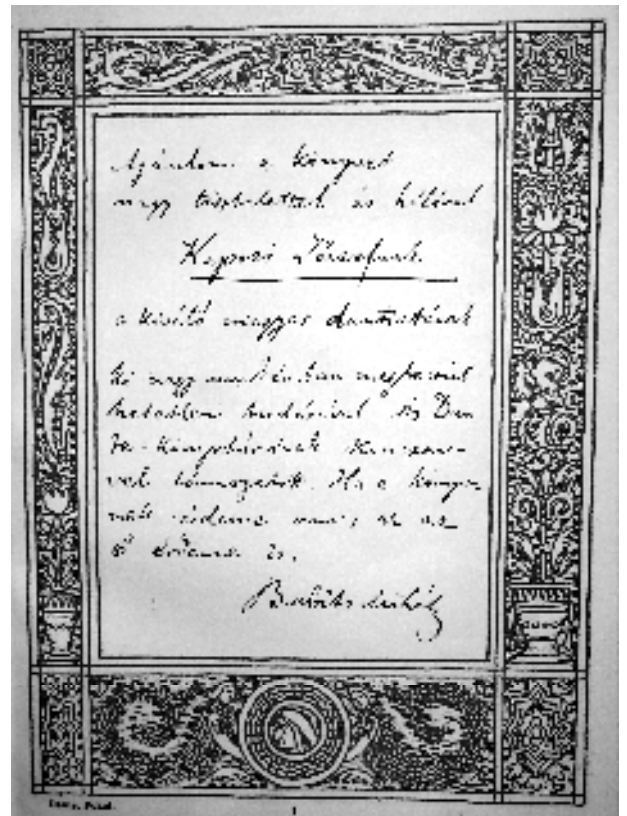 Ajánlom e könyvet
nagy tisztelettel és hálával
Kaposi Józsefnek
a kiváló magyar dantistának
ki nagy munkámban megbecsül-
hetetlen tudásával és Dan-
te-könyvtárának kincsei-
vel támogatott. Ha e könyv-
nek érdeme van, ez az
ő érdeme is.
Babits Mihály